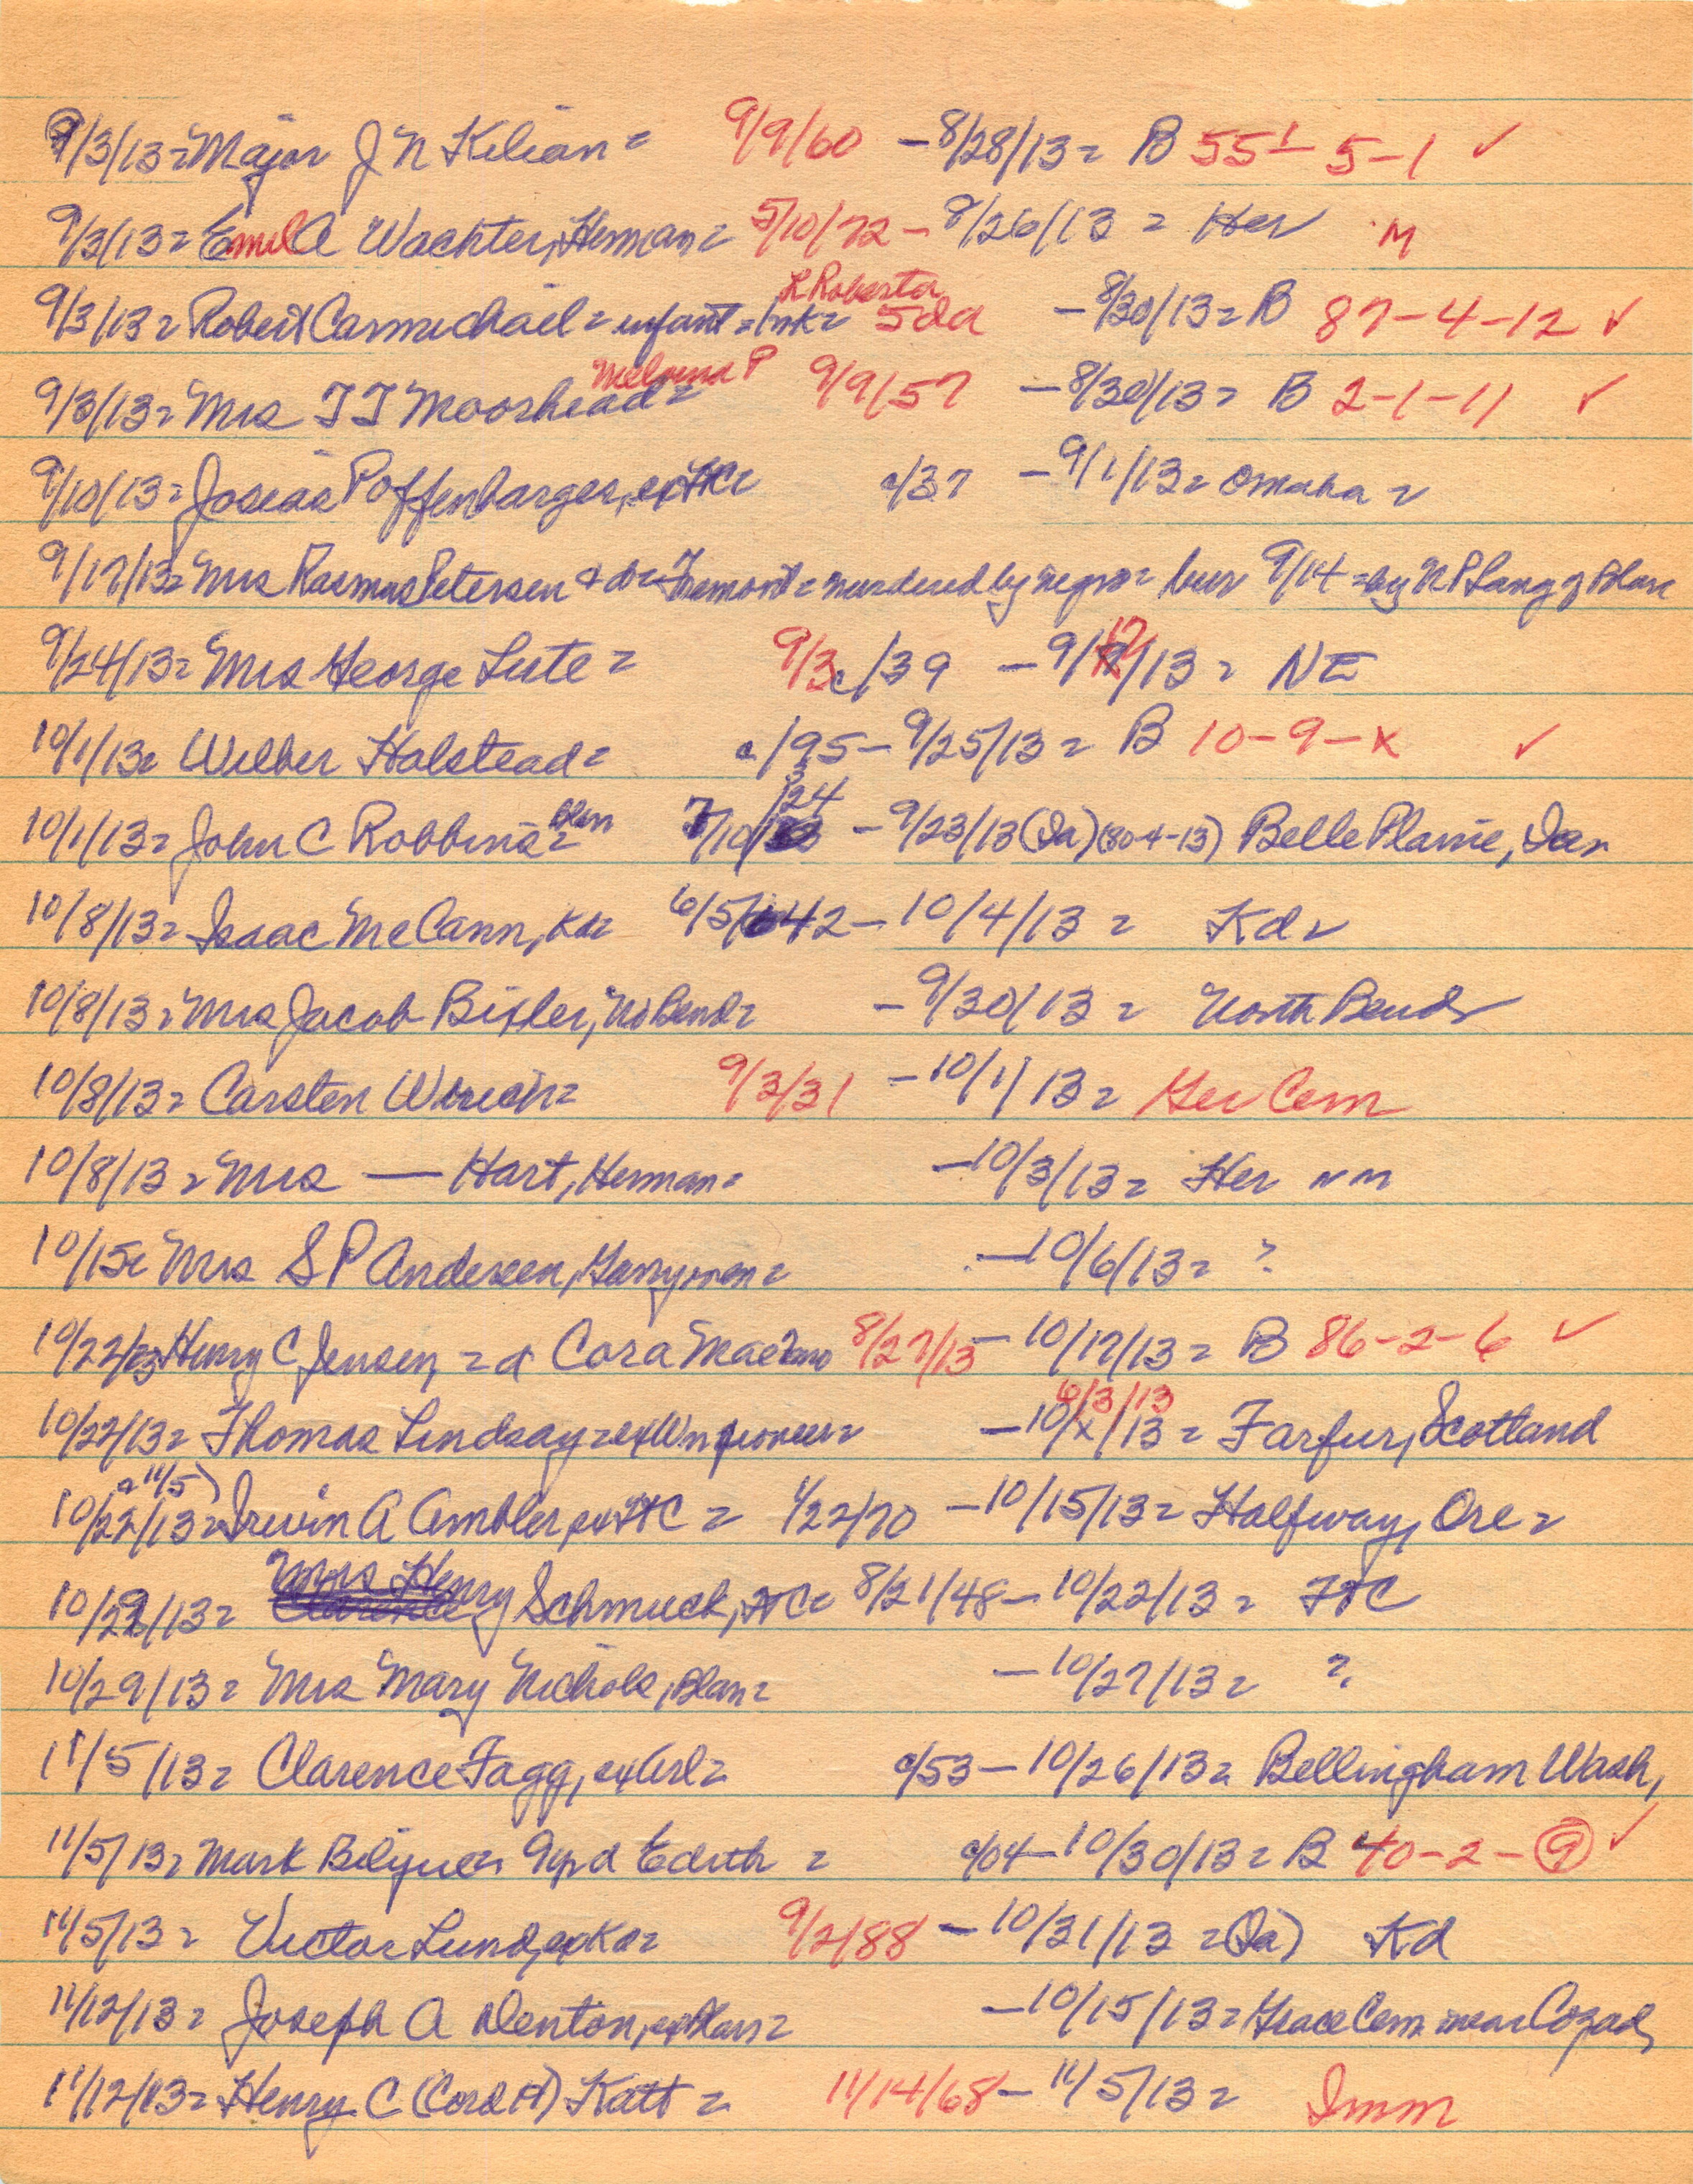 9/3/13= Major J N Kilian = 9/9/60 – 8/28/13 = B 55 5-1 ✓
9/3/13= Emil A Wachter, Herman = 5/10/72 – 8/26/13 = Her M
L Roberta
9/3/13= Robert Carmichael = infant = 5da – 8/30/13= B 87-4-12 ✓
P
9/3/13= Mrs T J Moorhead = 9/9/57 – 8/30/13= B 2-1-11 ✓
9/10/13= Josias Poffenbarger, exHC= c/37 – 9/1/13= Omaha =
9/17/13= Mrs Rasmus Petersen & dr = Fremont = murdered by negro = bur 9/14 = by N P Lang of Blair
9/24/13= Mrs George Lute = 9/3 c/39 – 9/17/13 = NE
10/1/13= Wilber Halstead = c/95 – 9/25/13 = B 10-9-x ✓
10/1/13= John C Robbins = Blair 7/10/24 – 9/23/13 (Ia) (80-4-13) Belle Plaine, Ia =
10/8/13= Isaac McCann, Kd= 6/5/42 – 10/4/13 = Kd =
10/8/13= Mrs Jacob Bixler, No Bend= – 9/30/13 = North Bend =
10/8/13= Carsten Wrich= 9/3/31 – 10/1/13 = Ger Cem
10/8/13= Mrs — Hart, Herman= – 10/3/13= Her nm
10/15= Mrs S P Andersen, Garryowen = – 10/6/13 = ?
10/22/13 Henry C Jensen, = d Cora Mae 8/27/13 – 10/17/13= B 86-2-6 ✓
6/3/13
10/22/13= Thomas Lindsay = exWn pioneer= – 10/x/13 = Farfur, Scotland
& 11/5)
10/22/13= Irwin A Ambler, exHC = 1/22/70 – 10/15/13= Halfway, Ore =
10/29/13= Mrs Henry Schmuck, FtC= 8/21/48 – 10/22/13 = FTC
10/29/13= Mrs Mary Nichols, Blair= – 10/27/13 = ?
11/5/13= Clarence Fagg, exArl= c/53 – 10/26/13= Bellingham Wash,
11/5/13= Mark Bilyeu = 9yr d Edith = c/04 – 10/30/13= B 40-2-9 ✓
11/5/13= Victor Lund, exKd= 9/2/88 – 10/31/13 = (Ia) Kd
11/12/13= Joseph A Denton, exBlair= – 10/15/13= Grace Cem near Cozad,
11/12/13= Henry C (Cord H) Katt = 11/14/68 – 11/5/13= Imm